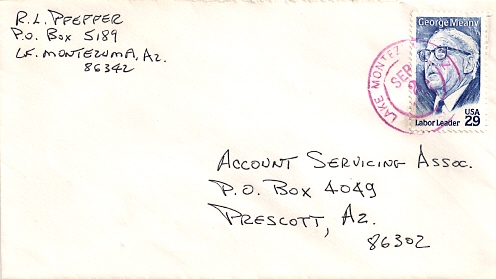 R.L. PFEFFER
P.O. BOX 5189
LK. MONTEZUMA, AZ.
86342
George Meany
LAKE MONTEZ
SEP
Labor Leader
USA
29
ACCOUNT SERVICING ASSOC.
P.O. BOX 4049
PRESCOTT, AZ.
86302